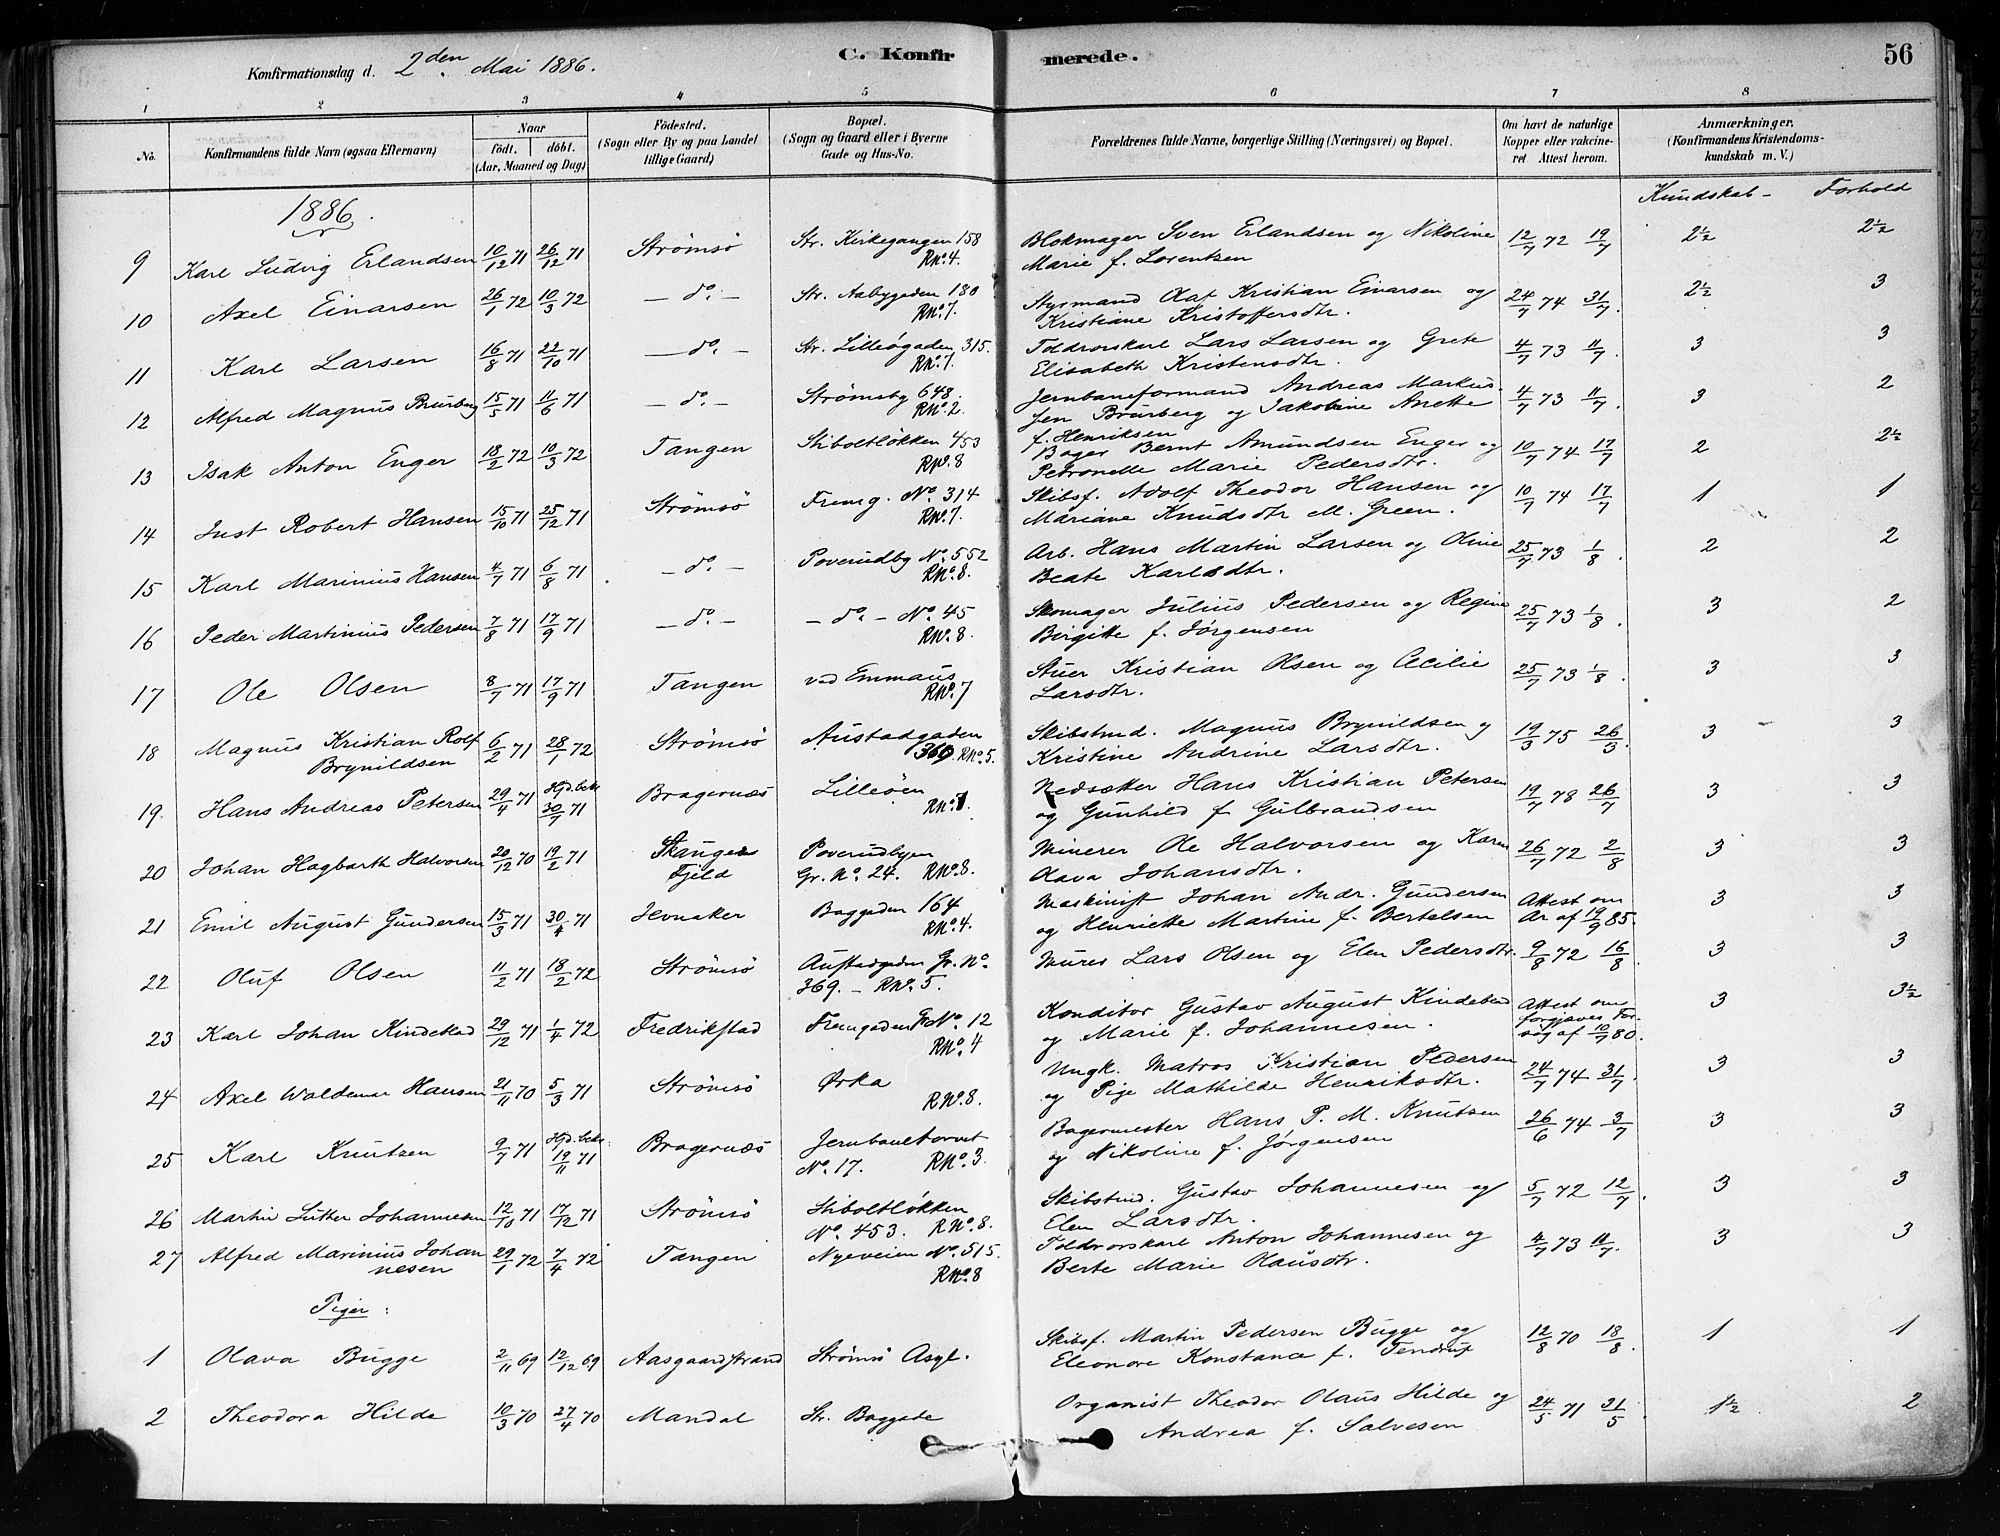 Konfirmationsdag d. 2den Mai 1886. C. Konfirmerede. 56
1 2 3 4 5 6 7 8
No. Konfirmandens fulde Navn (ogsaa Efternavn) Naar født. døbt. (Aar, Maaned og Dag) Fødested. (Sogn eller By og paa Landet tillige Gaard) Bopæl. (Sogn og Gaard eller i Byerne Gade og Hus-No. Forældrenes fulde Navne, borgerlige Stilling (Næringsvei) og Bopæl. Om havt de naturlige Kopper eller vakcineret Attest herom. Anmærkninger. (Konfirmandens Kristendomskundskab m. V.)
1886. Kundskab - Forhold
9 Karl Ludvig Erlandsen 10/12 71 26/12 71 Strömsö Str. Kirkegangen 158 RNo. 4. Blokmager Sven Erlandsen og Nikoline Marie f. Lorentzen 12/7 72 19/7 2½ 2½
10 Axel Einarsen 26/1 72 10/3 72 - do. - Str. Aabygaden 180 RNo. 7. Styrmand Kristian Einarsen og Kristiane Kristoffersdtr. 24/7 74 31/7. 2½ 3
11 Karl Larsen 16/8 71 22/10 71 - do. - Str. Lilleögaden 315. RNo. 7. Lars Larsen og Grete Elisabeth Kristensdtr. 4/7 73 11/7. 3 3
12 Alfred Magnus Brurberg 15/5 71 11/6 71 - do. - Strömsby 648. RNo. 2. Jernbaneformand Andreas Markussen Brurberg og Jakobine Anette f. Henriksen 4/7 73 11/7. 3 2
13 Isak Anton Enger 18/2 72 10/3 72 Tangen Stiboltløkken 453 RNo. 8 Bager Bernt Amundsen Enger og Petronelle Marie Pedersdtr. 10/7 74 17/7 2 2½
14 Just Robert Hansen 15/10 71 25/12 71 Strömsö Fremg. No. 314 RNo. 7. Skibsf. Adolf Theodor Hansen og Mariane Knudsdtr M. Green. 10/7 74 17/7 1 1
15 Karl Marinius Hansen 4/7 71 6/8 71 - do. - Poverudby No. 552 RNo. 8. Arb. Hans Martin Larsen og Oline Beate Karlsdtr. 25/7 73 1/8. 2 2
16 Peder Martinius Pedersen 7/8 71 17/9 71 - do. - - do. - No. 45 RNo. 8. Skomager Julius Pedersen og Regine Birgitte f. Jørgensen 25/7 73 1/8. 3 2
17 Ole Olsen 8/7 71 17/9 71 Tangen ved Emmaus RNo. 7 Stuer Kristian Olsen og Cecilie Larsdtr. 25/7 73 1/8. 3 3
18 Magnus Kristian Rolf Brynildsen 6/2 71 28/1 72 Strömsö Austadgaden RNo. 5. Skibstmd. Magnus Brynildsen og Kristine Andrine Larsdtr. 19/3 75 26/3. 3 3
19. Hans Andreas Petersen 29/4 71 Hjd. bekr. 30/7 71 Bragernæs Lilleöen Hans Kristian Petersen og Gunhild f Gulbrandsen 19/7 78 26/7 3 3
20 Johan Hagbarth Halvorsen 20/12 70 19/2 71 Skauger Fjeld Poverudbyen Gr. No. 24. RNo. 8. Minerer Ole Halvorsen og Karen Olava Johansdtr. 26/7 72 2/8 3 3
21 Emil August Gundersen 15/3 71 30/4 71 Jevnaker Baggaden 164 RNo. 4. Maskinist Johan Andr. Gundersen og Henriette Martine f. Bertelsen Attest om Ar af 19/9 85. 3 3
22 Oluf Olsen 11/2 71 18/2 72 Strömsö Austadgaden Gr. No. 369. - RNo. 5. Murer Lars Olsen og Elen Pedersdtr. 9/8 72 16/8 3 3
23 Karl Johan Kindstad 29/12 71 1/4 72 Fredrikstad Fremgaden No. 12 RNo. 4 Konditor Gustav August Kindstad og Marie f. Johannesen. Attest om forgjæves Forsøg af 10/7 80. 3 3½
24 Axel Waldemar Hansen 21/11 70 5/3 71 Strömsö Ørka RNo. 8. Ungk. Matros Kristian Pedersen og Pige Mathilde Henriksdtr. 24/7 74 31/7. 3 3
25 Karl Knutzen 9/7 71 Hjd. bekr. 19/11 71 Bragernæs Jernbanetorvet No. 17. RNo. 3. Bagermester Hans P. M. Knutzen og Nikoline f. Jørgensen 26/6 74 3/7 3 3
26 Martin Lutter Johannesen 12/10 71 17/12 71 Strömsö Stiboltløkken No. 453. RNo. 8. Skibstmd. Gustav Johannesen og Elen Larsdtr. 5/7 72 12/7. 3 3
27 Alfred Marinius Johannesen 29/1 72 7/4 72 Tangen Nyeveien No. 515. RNo. 8 Anton Johannesen og Berte Marie Olausdtr. 4/7 73 11/7. 3 3
Piger:
1 Olava Bugge 2/11 69 12/12 69 Aasgaardstrand Strömsö Asyl. Skibsf. Martin Pedersen Bugge og Eleonore Konstance f. Tendrup 12/8 70 18/8. 1 1
2 Theodora Hilde 10/3 70 27/4 70 Mandal Str. Baggade Organist Theodor Olaus Hilde og Andrea f. Salvesen 24/5 71 31/5 1½ 2